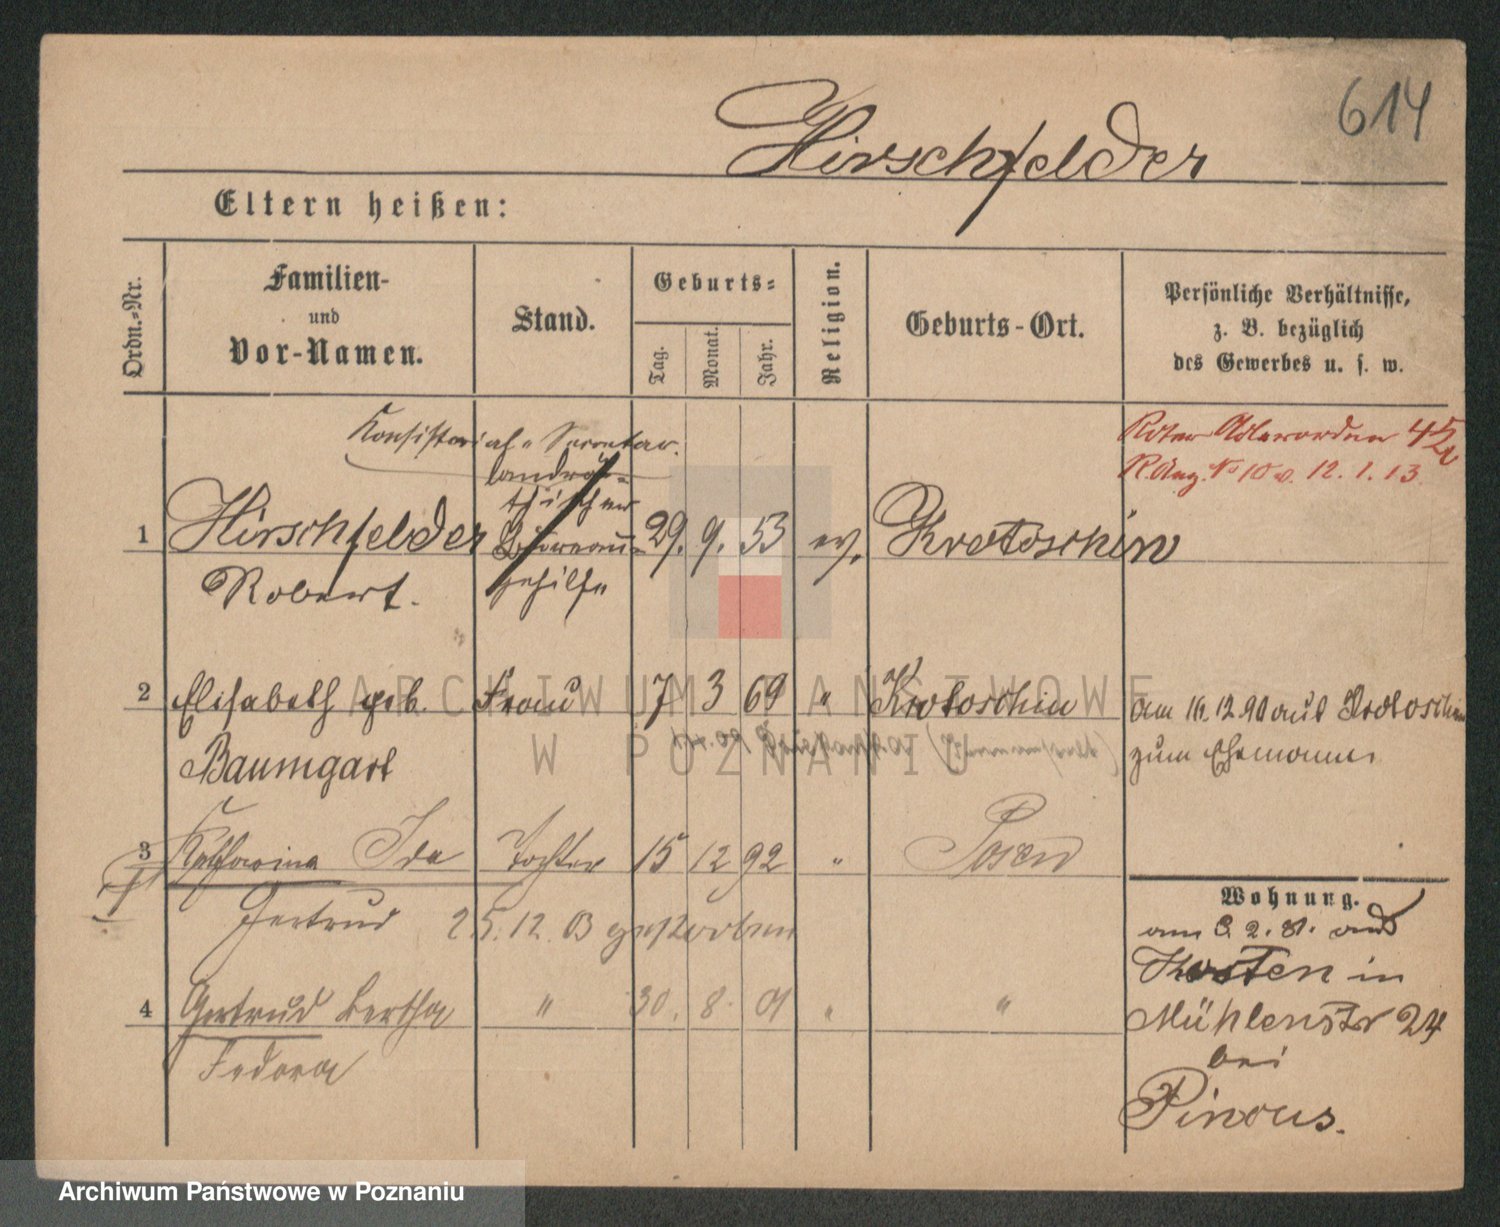 614
Hirschfelder
Eltern heißen:
Ordn.-Nr.
Familien-
und
Vor-Namen.
Stand.
Geburts-
Tag.
Monat.
Jahr.
Religion.
Geburts-Ort.
Persönliche Verhältnisse,
z. B. bezüglich
des Gewerbes u. s. w.
Konsistorial-Secretar.
Roter Adlerorden 4
12. 1. 13.
1 Hirschfelder 29. 9. 53 ev. Krotoschin
Robert. gehilfe
2 Elisabeth geb. Frau 7 3 69 " Krotoschin am 16.12.90 aus Krotoschin
Baumgart zum Ehemann
3 Katharina Ida Tochter 15 12 92 " Posen
Gertrud 25.12.03 gestorben
4 Gertrud Bertha " 30. 8. 01 " "
Fedora
Wohnung.
am 8. 2. 81. aus
Kosten in
Mühlenstr 24
bei
Pincus.
ARCHIWUM PAŃSTWOWE
W POZNANIU
Archiwum Państwowe w Poznaniu